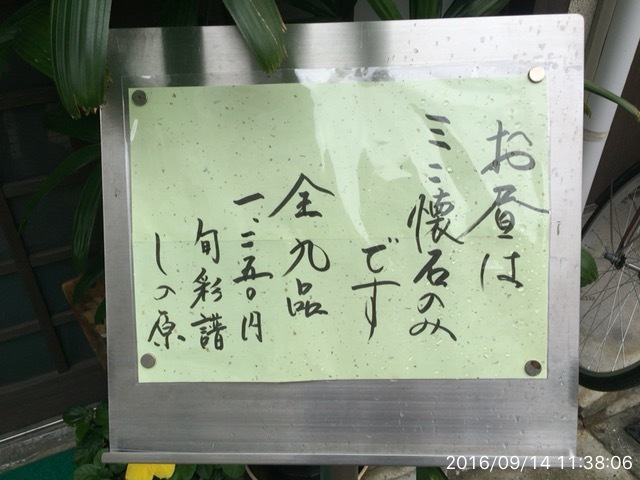 お昼は
ミニ懐石のみ
です
全九品
一、二五〇円
旬彩譜
しの原
2016/09/14 11:38:06